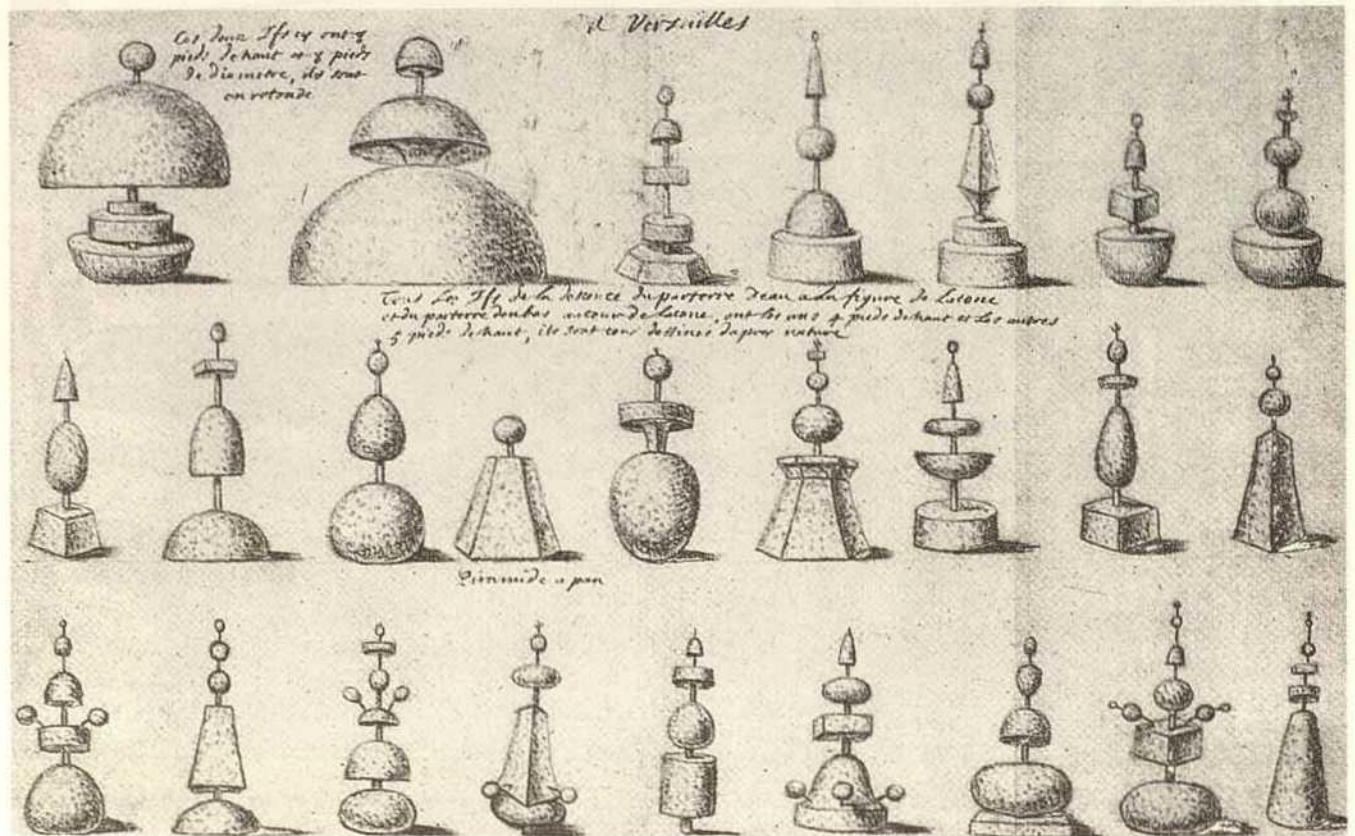 à Versailles
Ces deux Ifs cy ont 7
pieds de haut et 7 pieds
de diametre, ils sont
en rotonde
Tous Les Ifs de la descente du parterre Deau a La figure de Latone
et du parterre den bas autour de Latone, ont les uns 4 pieds de haut et Les autres
5 pieds de haut, ils sont tous dessinés dapres nature
Piramide a pan